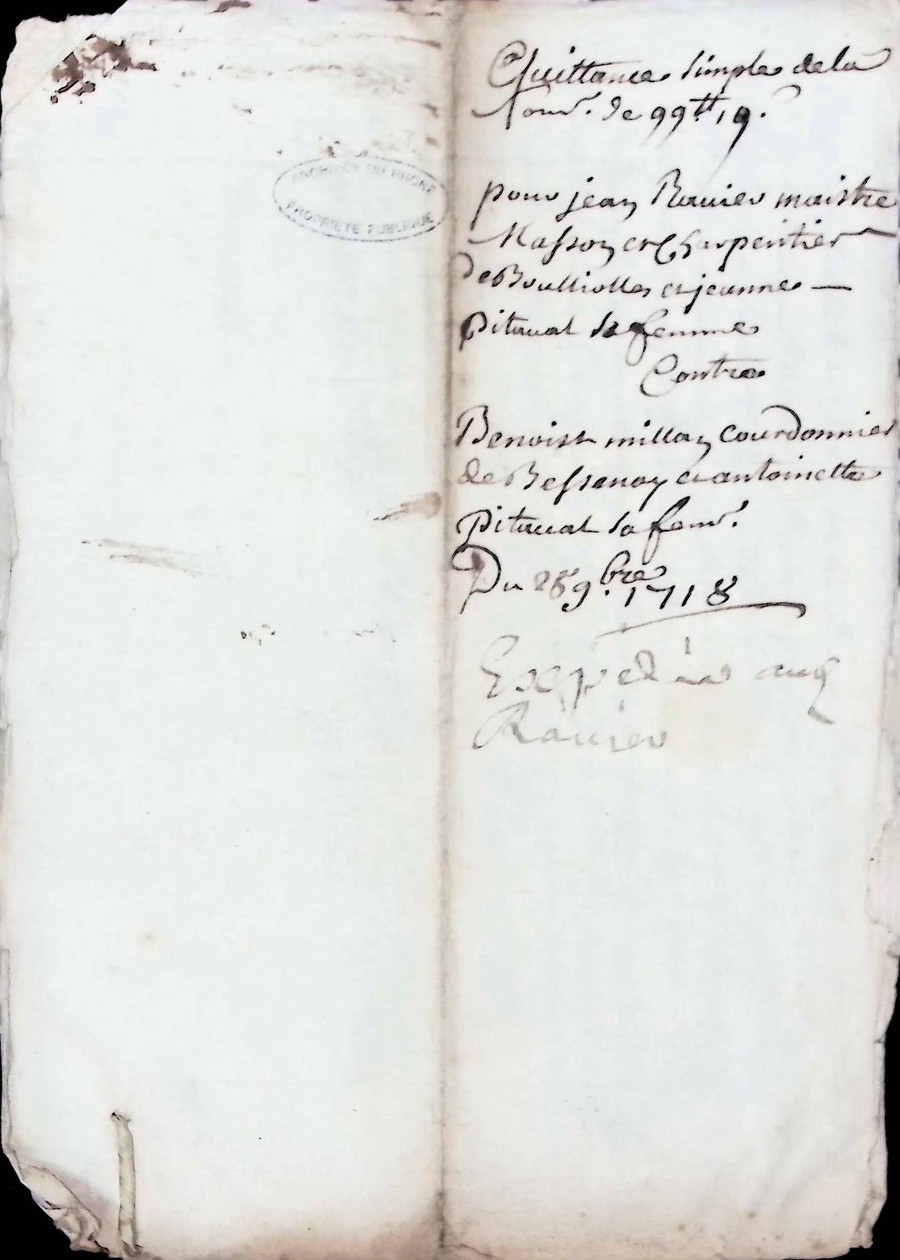 ARCHIVES DU RHONE
PROPRIETE PUBLIQUE
Quittance simple de la
Som.e de 99tt 19.s
pour jean Ravier maistre
Masson et Charpentier
de et jeanne
Pitaval sa femme
Contre
Benoist millon Courdonnier
de Bessenay et antoinette
Pitaval sa fem.e
Du 28 9.bre 1718
Expedié aud
Ravier